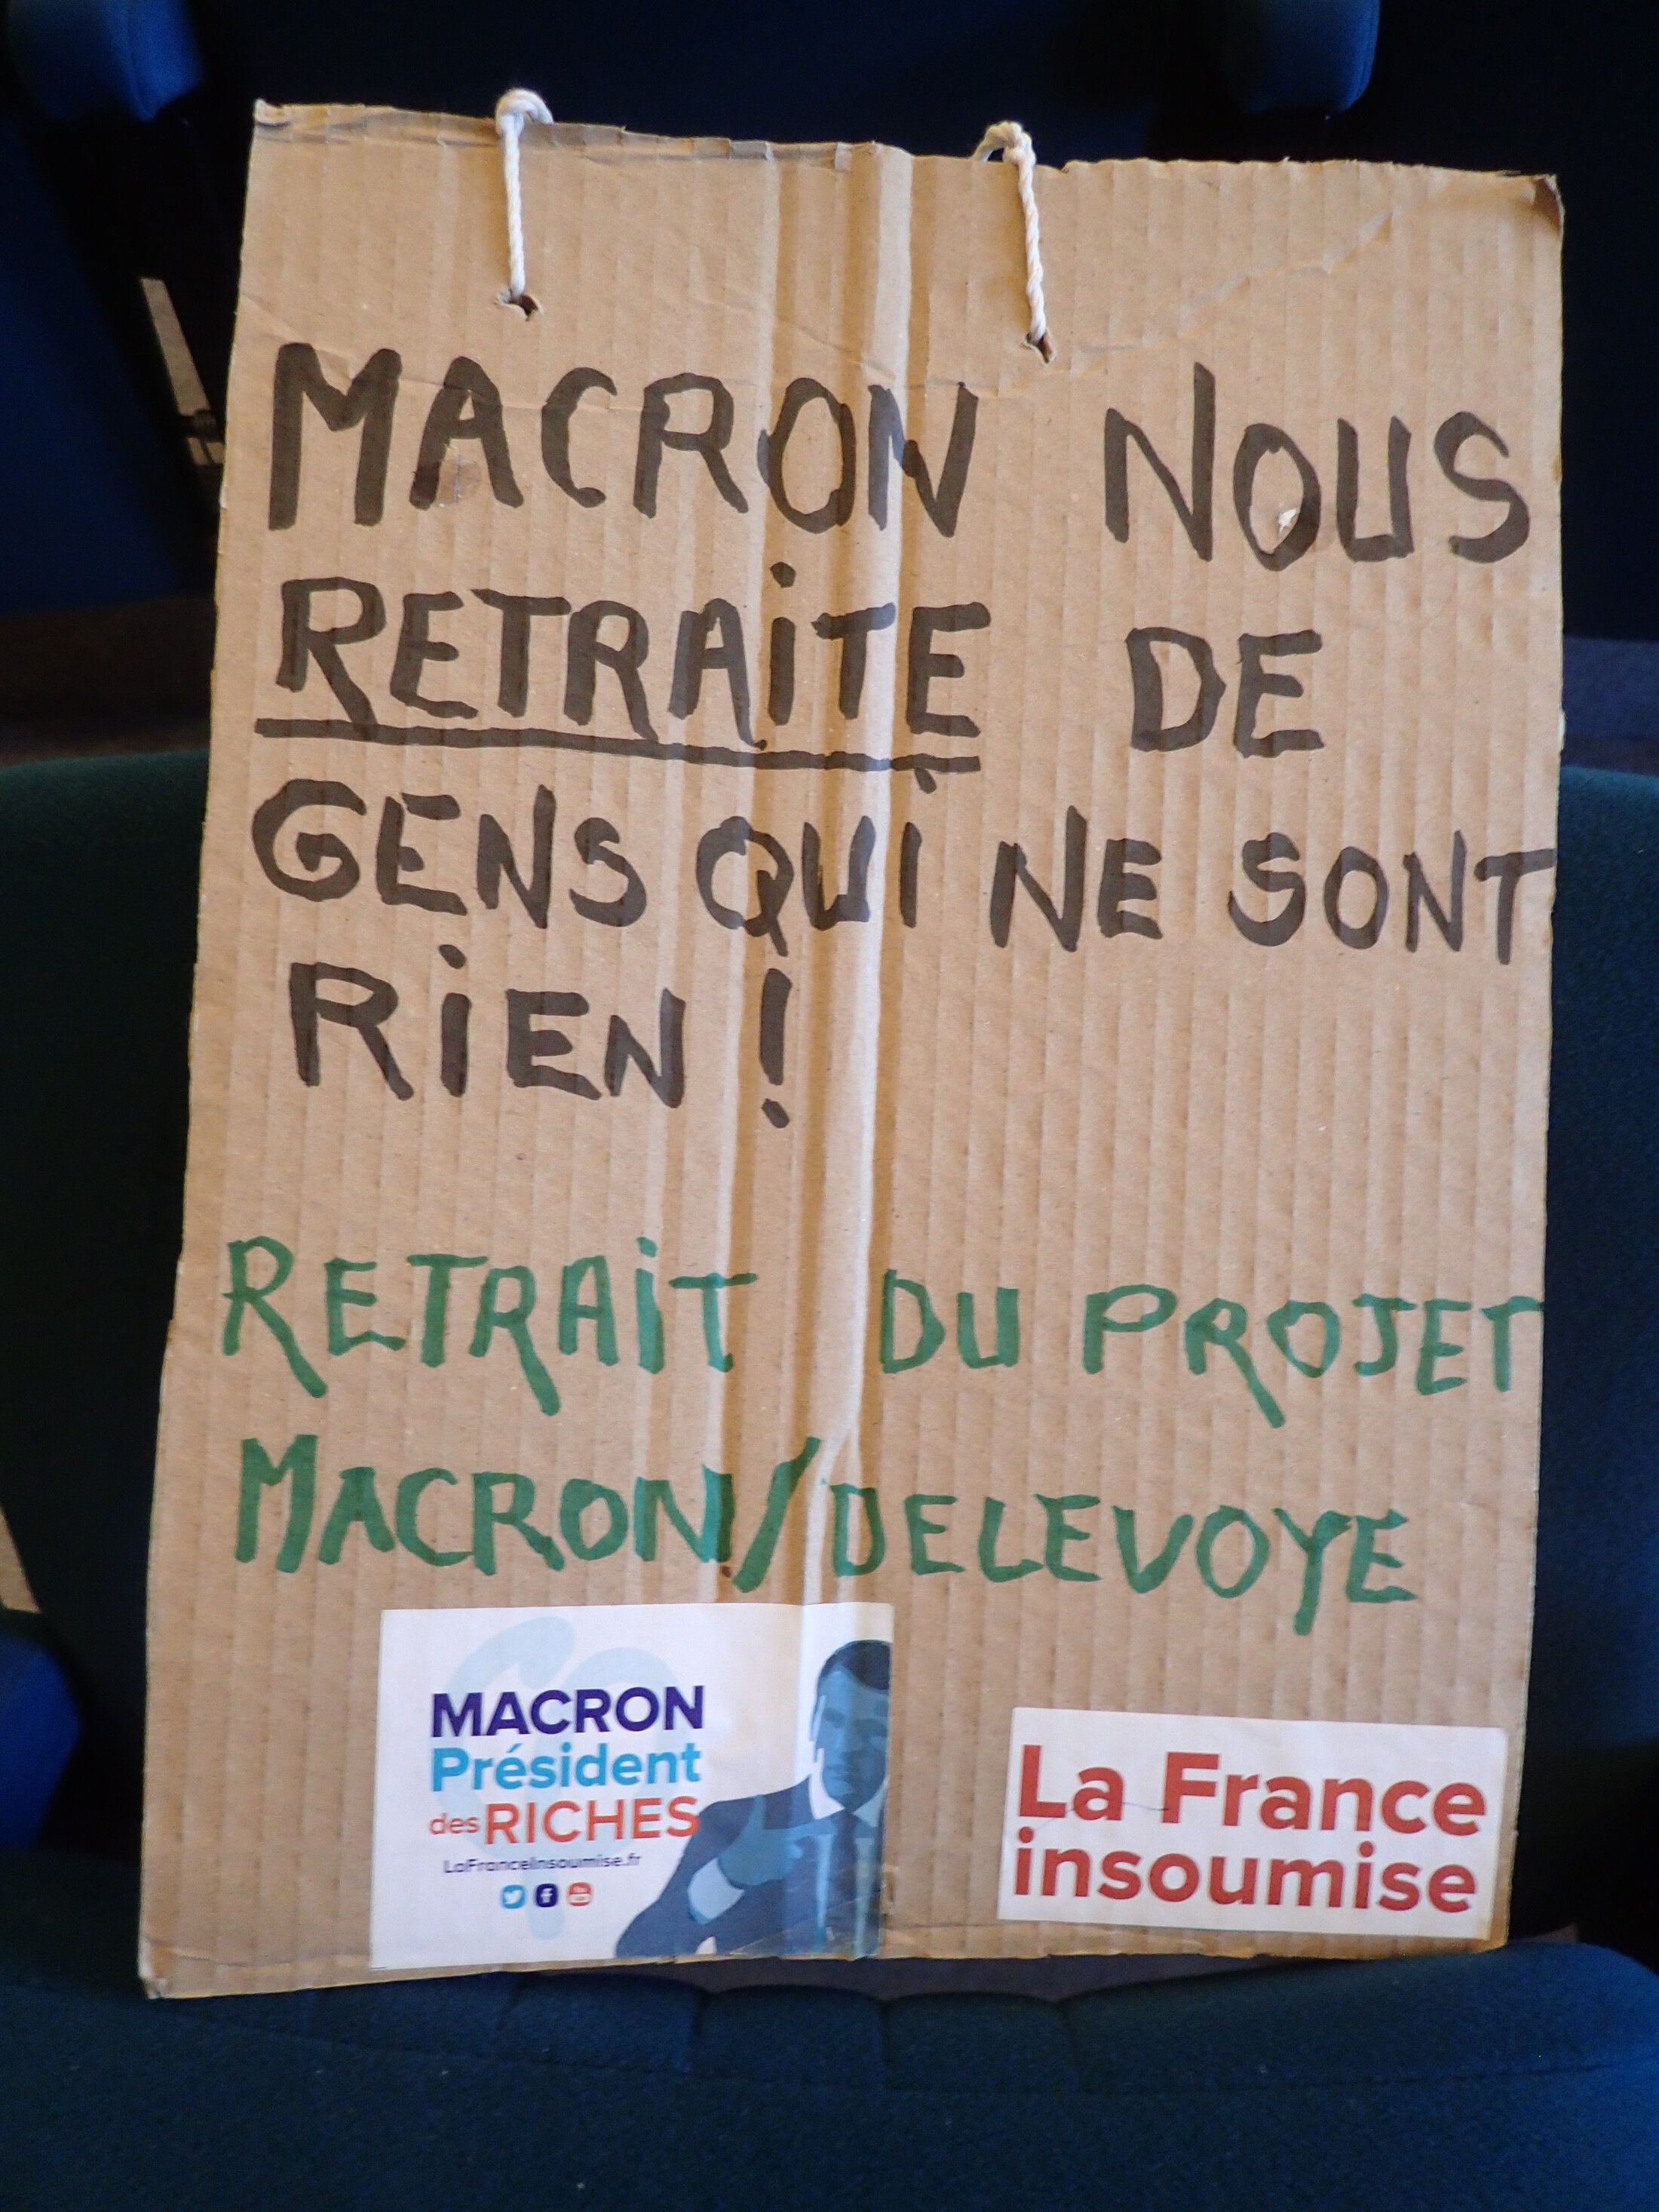 MACRON NOUS
RETRAITE DE
GENS QUI NE SONT
RIEN !
RETRAIT DU PROJET
MACRON/DELEVOYE
MACRON
Président
des RICHES
LaFranceInsoumise.fr
La France
insoumise